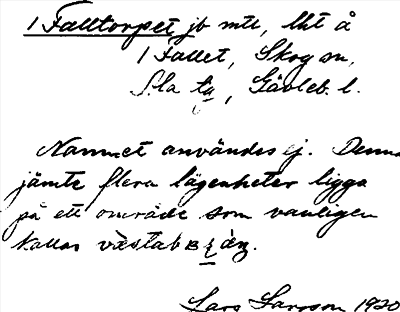 1 Falltorpet jb mtl, lht å
1 Fallet, Skog sn,
S:la tg, Gävleb. l.
Namnet användes ej. Denna
jämte flera lägenheter ligga
på ett område som vanligen
kallas
Lars Larsson 1920